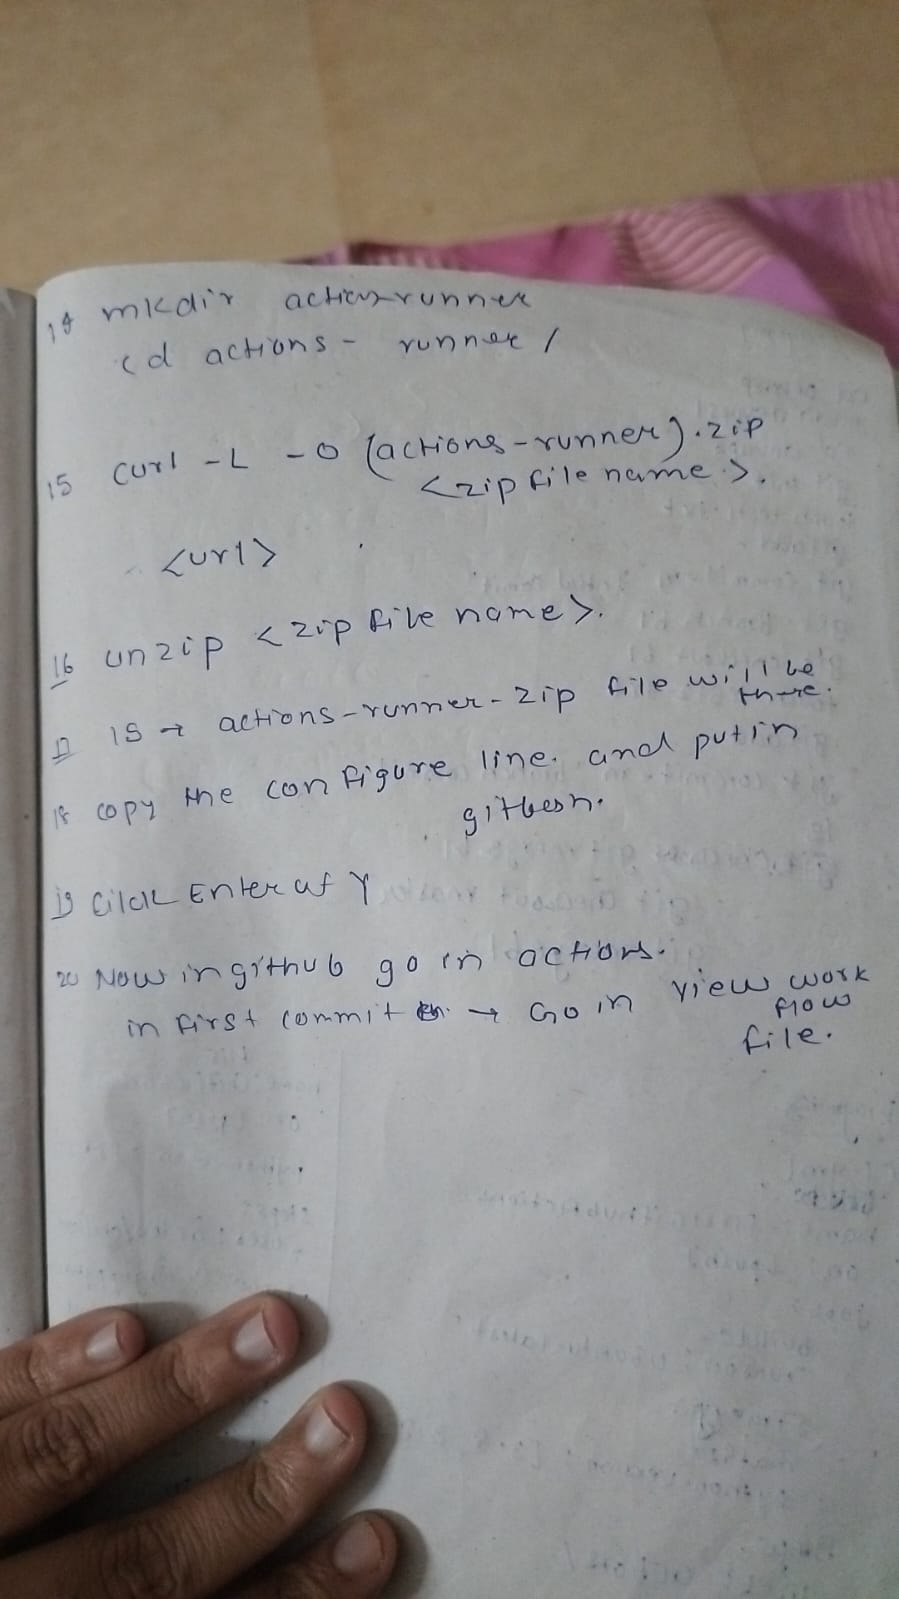 14 mkdir actionsrunner
cd actions - runner /
15 curl -L -O (actions-runner).zip
<zip file name>.
<url>
16 unzip <zip file name>.
17 ls → actions-runner-zip file will be
there.
18 copy the configure line. and put in
gitbesh.
19 Cilck Enter at Y
20 Now in github go in actions.
in first commit → Go in view work
flow
file.